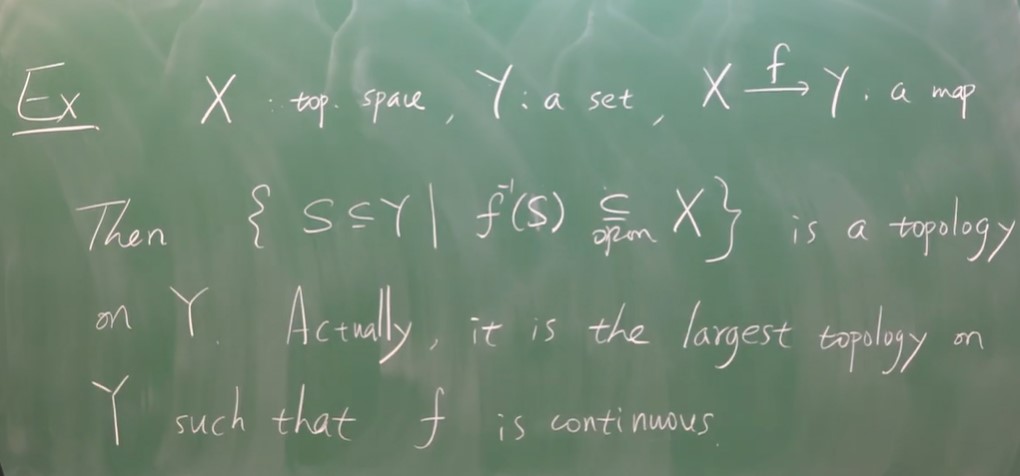 Ex X : top. space, Y : a set, X $\xrightarrow{f}$ Y. a map
Then { S ⊆ Y | f⁻¹(S) $\underset{open}{\subseteq}$ X } is a topology
on Y. Actually, it is the largest topology on
Y such that f is continuous.